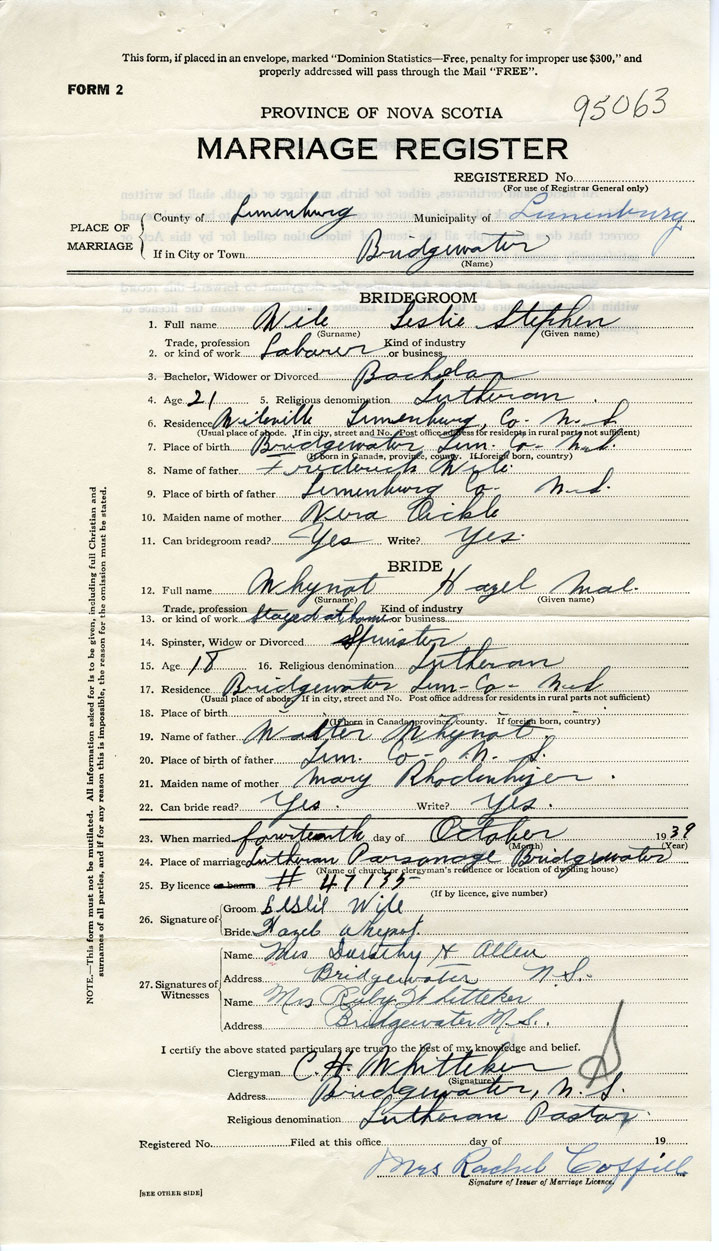 This form, if placed in an envelope, marked "Dominion Statistics—Free, penalty for improper use $300," and
properly addressed will pass through the Mail "FREE".
FORM 2
95063
PROVINCE OF NOVA SCOTIA
MARRIAGE REGISTER
REGISTERED No.
(For use of Registrar General only)
PLACE OF MARRIAGE
County of Lunenburg Municipality of Lunenburg
If in City or Town Bridgewater
(Name)
BRIDEGROOM
1. Full name Wile Leslie Stephen
(Surname) (Given name)
2. Trade, profession or kind of work Laborer Kind of industry or business
3. Bachelor, Widower or Divorced Bachelor
4. Age 21 5. Religious denomination Lutheran
6. Residence Wileville Lunenburg, Co. N. S.
(Usual place of abode. If in city, street and No. Post office address for residents in rural parts not sufficient)
7. Place of birth Bridgewater Lun. Co. N.S.
(If born in Canada, province, county. If foreign born, country)
8. Name of father Frederick Wile
9. Place of birth of father Lunenburg Co. N.S.
10. Maiden name of mother Vera Eickle
11. Can bridegroom read? Yes Write? Yes.
BRIDE
12. Full name Whynot Hazel Mae.
(Surname) (Given name)
13. Trade, profession or kind of work Stayed at home Kind of industry or business
14. Spinster, Widow or Divorced Spinster
15. Age 18 16. Religious denomination Lutheran
17. Residence Bridgewater Lun-Co- N.S
(Usual place of abode. If in city, street and No. Post office address for residents in rural parts not sufficient)
18. Place of birth
(If born in Canada, province, county. If foreign born, country)
19. Name of father Walter Whynot
20. Place of birth of father Lun. Co- N. S.
21. Maiden name of mother Mary Rhodenhizer.
22. Can bride read? Yes. Write? Yes.
23. When married fourteenth day of October 1939
(Month) (Year)
24. Place of marriage Lutheran Parsonage Bridgewater
(Name of church or clergyman's residence or location of dwelling house)
25. By licence # 47135
(If by licence, give number)
26. Signature of
Groom Leslie Wile
Bride Hazel Whynot.
27. Signatures of Witnesses
Name Mrs Dorothy H Allen
Address Bridgewater N.S.
Name Mrs Ruby Whitteker
Address Bridgewater N.S.
I certify the above stated particulars are true to the best of my knowledge and belief.
Clergyman C. H. Whitteker
(Signature)
Address Bridgewater, N.S.
Religious denomination Lutheran Pastor.
Registered No. Filed at this office day of 19
Mrs Rachel Coffill
Signature of Issuer of Marriage Licence.
[SEE OTHER SIDE]
NOTE.—This form must not be mutilated. All information asked for is to be given, including full Christian and
surnames of all parties, and if for any reason this is impossible, the reason for the omission must be stated.